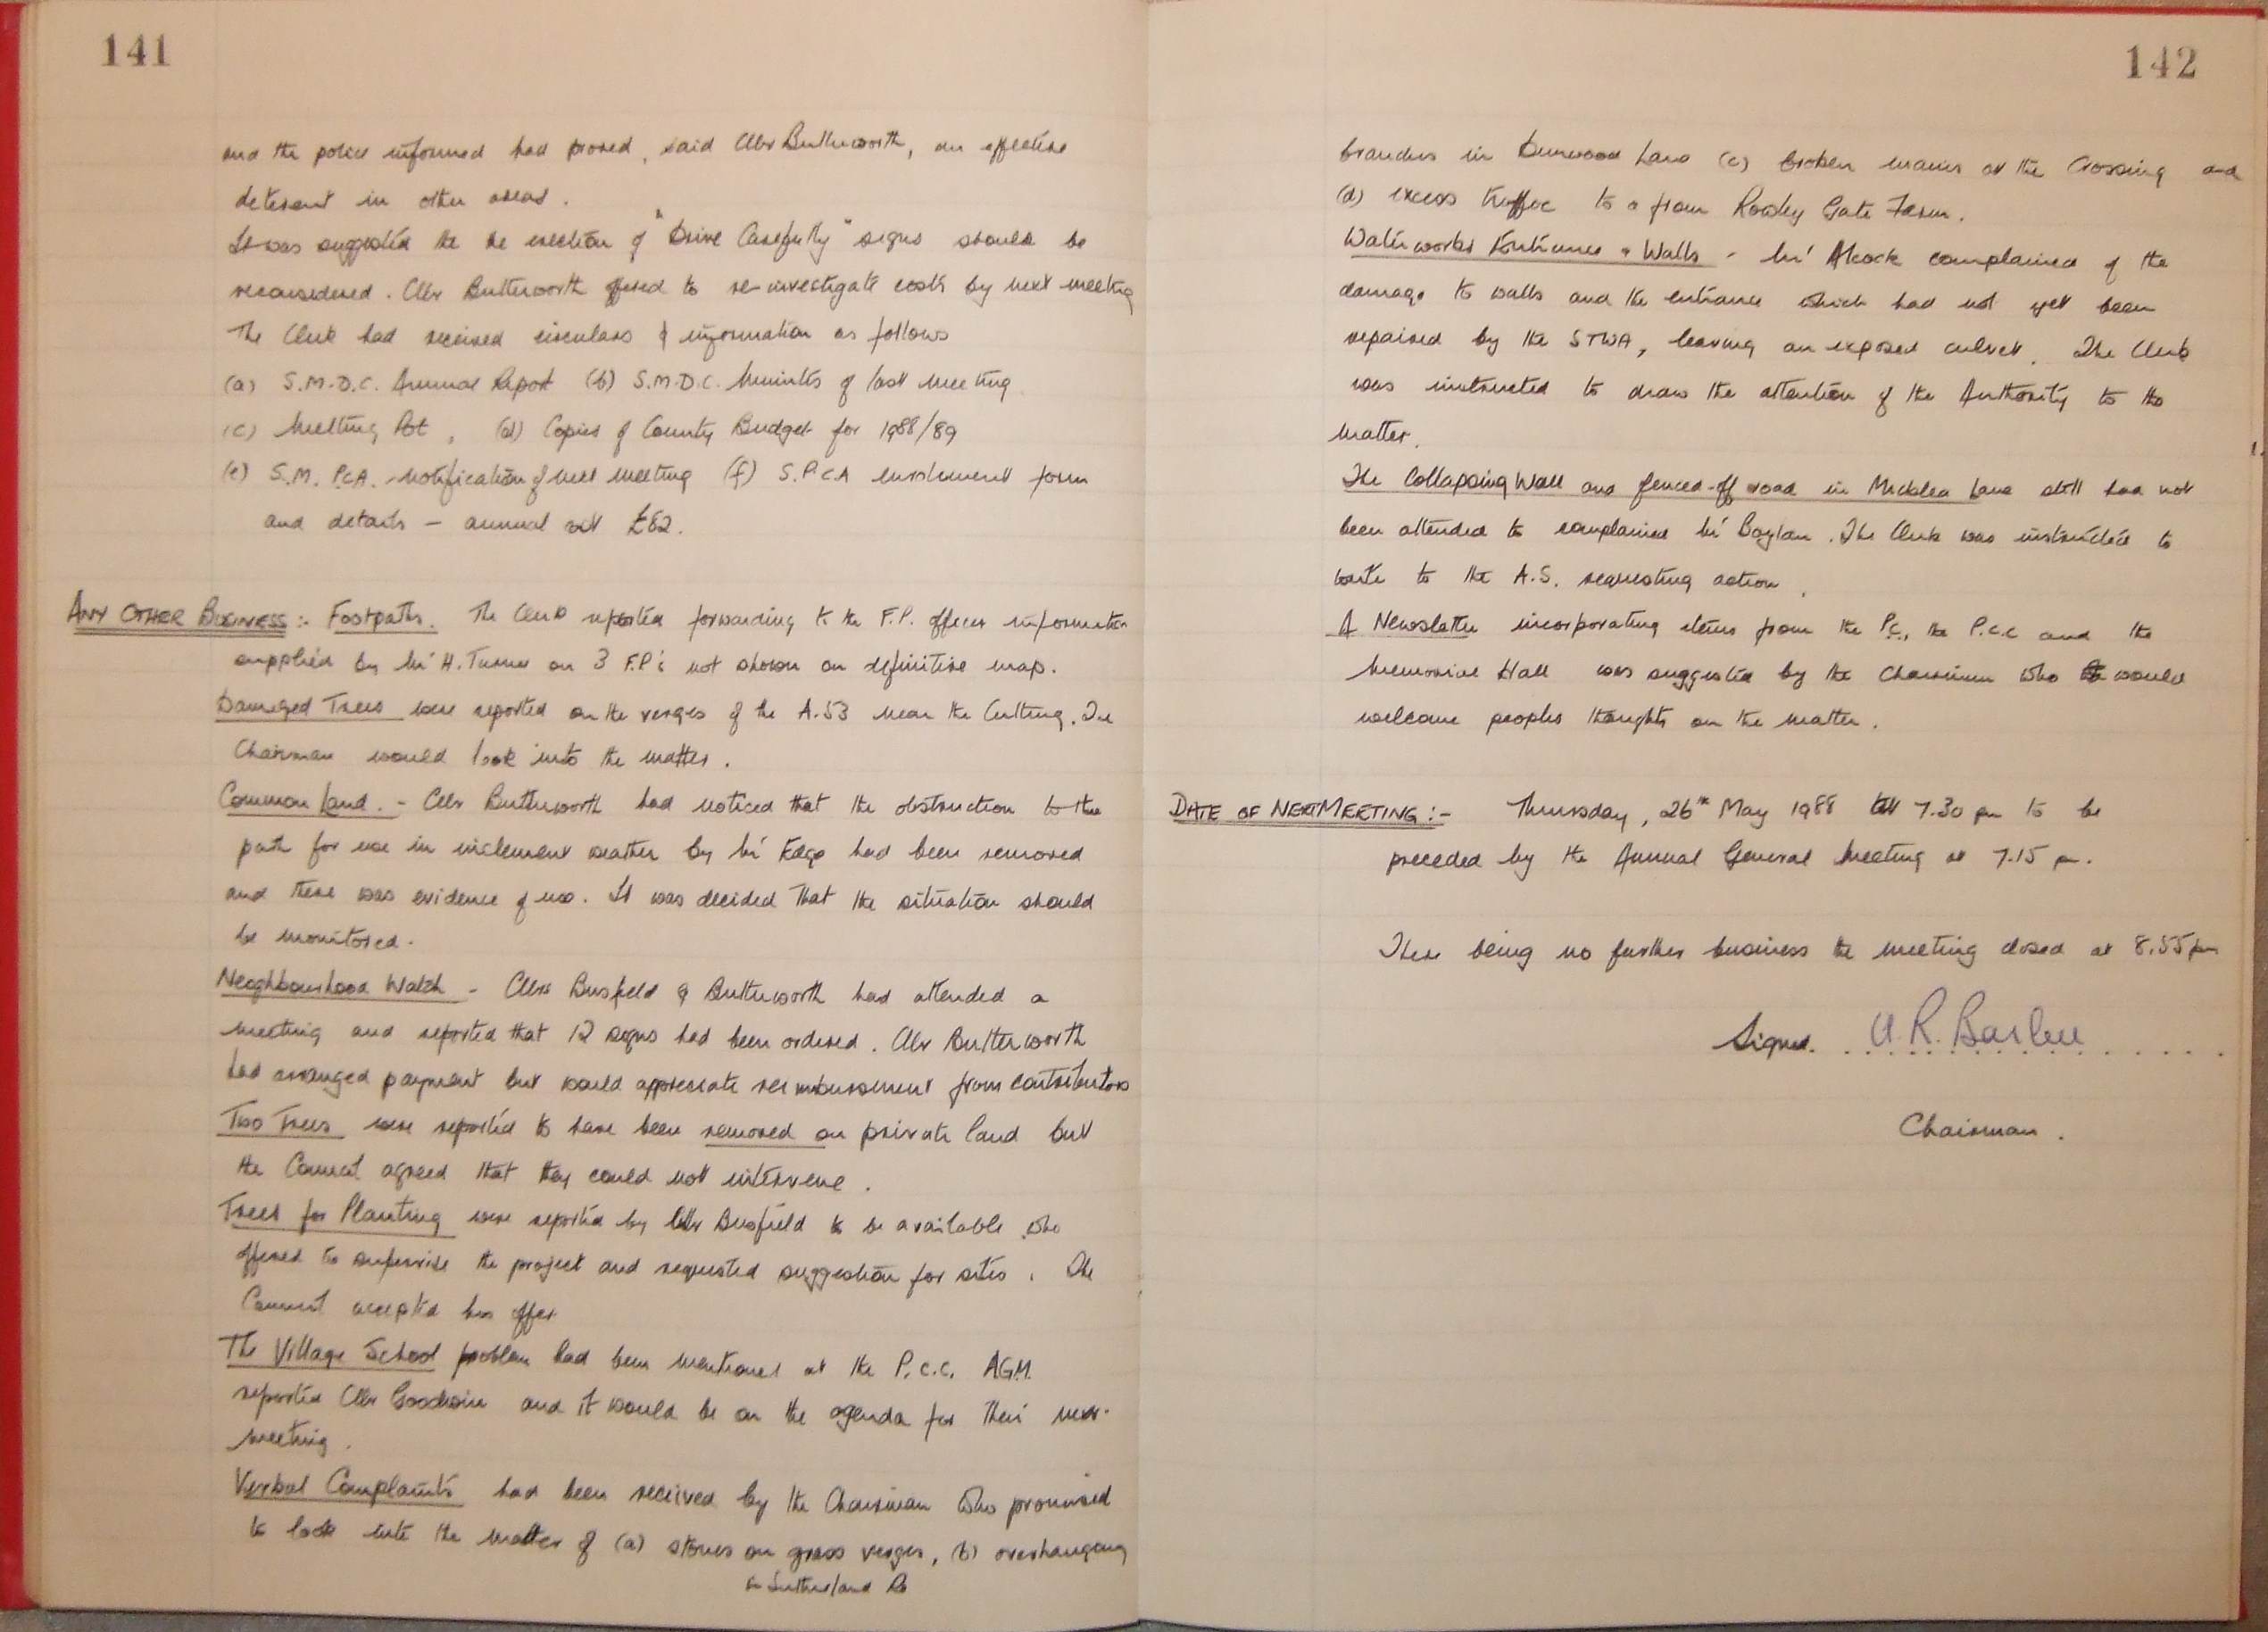 141
and the police informed had proved, said Cllr Butterworth, an effective
deterent in other areas.
It was suggested the the erection of "Drive Carefully" signs should be
reconsidered. Cllr Butterworth offered to re-investigate costs by next meeting
The Clerk had received circulars & information as follows
(a) S.M.D.C. Annual Report (b) S.M.D.C. Minutes of last meeting
(c) Melting Pot, (d) Copies of County Budget for 1988/89
(e) S.M. P.C.A. - notification of next meeting (f) S.P.C.A enrolement form
and details - annual £82.
ANY OTHER BUSINESS :- Footpaths. The Clerk reported forwarding to the F.P. officer information
supplied by Mr H. Turner on 3 F.P's not shown on definitive map.
Damaged Trees were reported on the verges of the A.53 near the Cutting. The
Chairman would look into the matter.
Common Land. - Cllr Butterworth had noticed that the obstruction to the
path for use in inclement weather by Mr Edge had been removed
and there was evidence of use. It was decided that the situation should
be monitored.
Neighbourhood Watch - Cllrs Busfield & Butterworth had attended a
meeting and reported that 12 signs had been ordered. Cllr Butterworth
had arranged payment but would appreciate reimbursement from contributors
Two Trees were reported to have been removed on private land but
the Council agreed that they could not intervene.
Trees for Planting were reported by Cllr Busfield to be available who
offered to supervise the project and requested suggestion for sites. The
Council accepted his offer
The Village School problem had been mentioned at the P.C.C. AGM.
reported Cllr Goodwin and it would be on the agenda for their next
meeting.
Verbal Complaints had been received by the Chairman who promised
to look into the matter of (a) stones on grass verges, (b) overhanging
in Sutherland Rd
142
branches in Dunwood Lane (c) broken mains at the Crossing and
(d) excess traffic to & from Rowley Gate Farm.
Waterworks Entrance & Walls - Mr Alcock complained of the
damage to walls and the entrance which had not yet been
repaired by the STWA, leaving an exposed culvert. The Clerk
was instructed to draw the attention of the Authority to the
matter.
The Collapsing Wall and fenced-off road in Micklea Lane still had not
been attended to complained Mr Boylan. The Clerk was instructed to
write to the A.S. requesting action.
A Newsletter incorporating items from the P.C., the P.C.C and the
Memorial Hall was suggested by the Chairman who would
welcome peoples thoughts on the matter.
DATE OF NEXT MEETING :- Thursday, 26th May 1988 at 7.30 pm to be
preceded by the Annual General Meeting at 7.15 pm.
There being no further business the meeting closed at 8.55 pm
Signed. R.
Chairman.